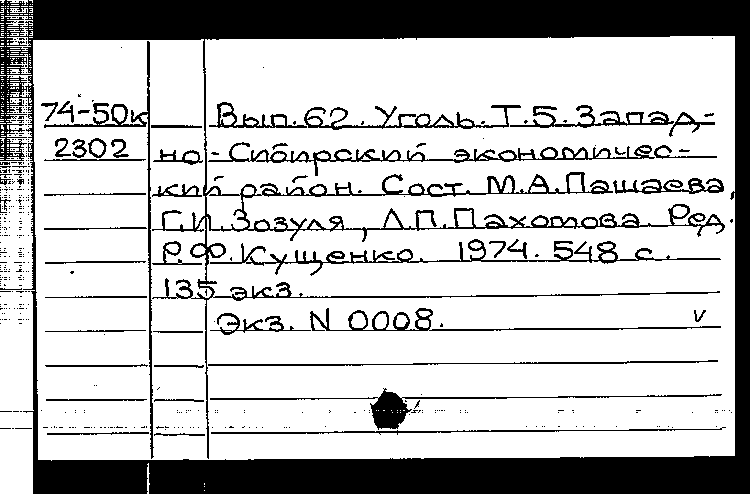 74-50к Вып.62. Уголь. Т.5. Запад-
2302 но-Сибирский экономичес-
кий район. Сост. М.А.Пашаева,
Г.И.Зозуля, Л.П.Пахомова. Ред.
Р.Ф.Кущенко. 1974. 548 с.
135 экз.
Экз. N 0008. v